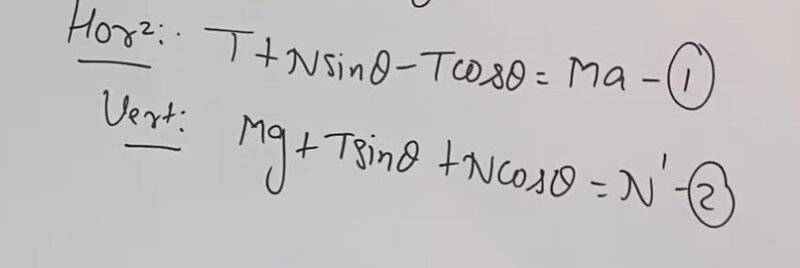 Horz:. T + N sinθ - T cosθ = Ma - ①
Vert: Mg + T sinθ + N cosθ = N' - ②